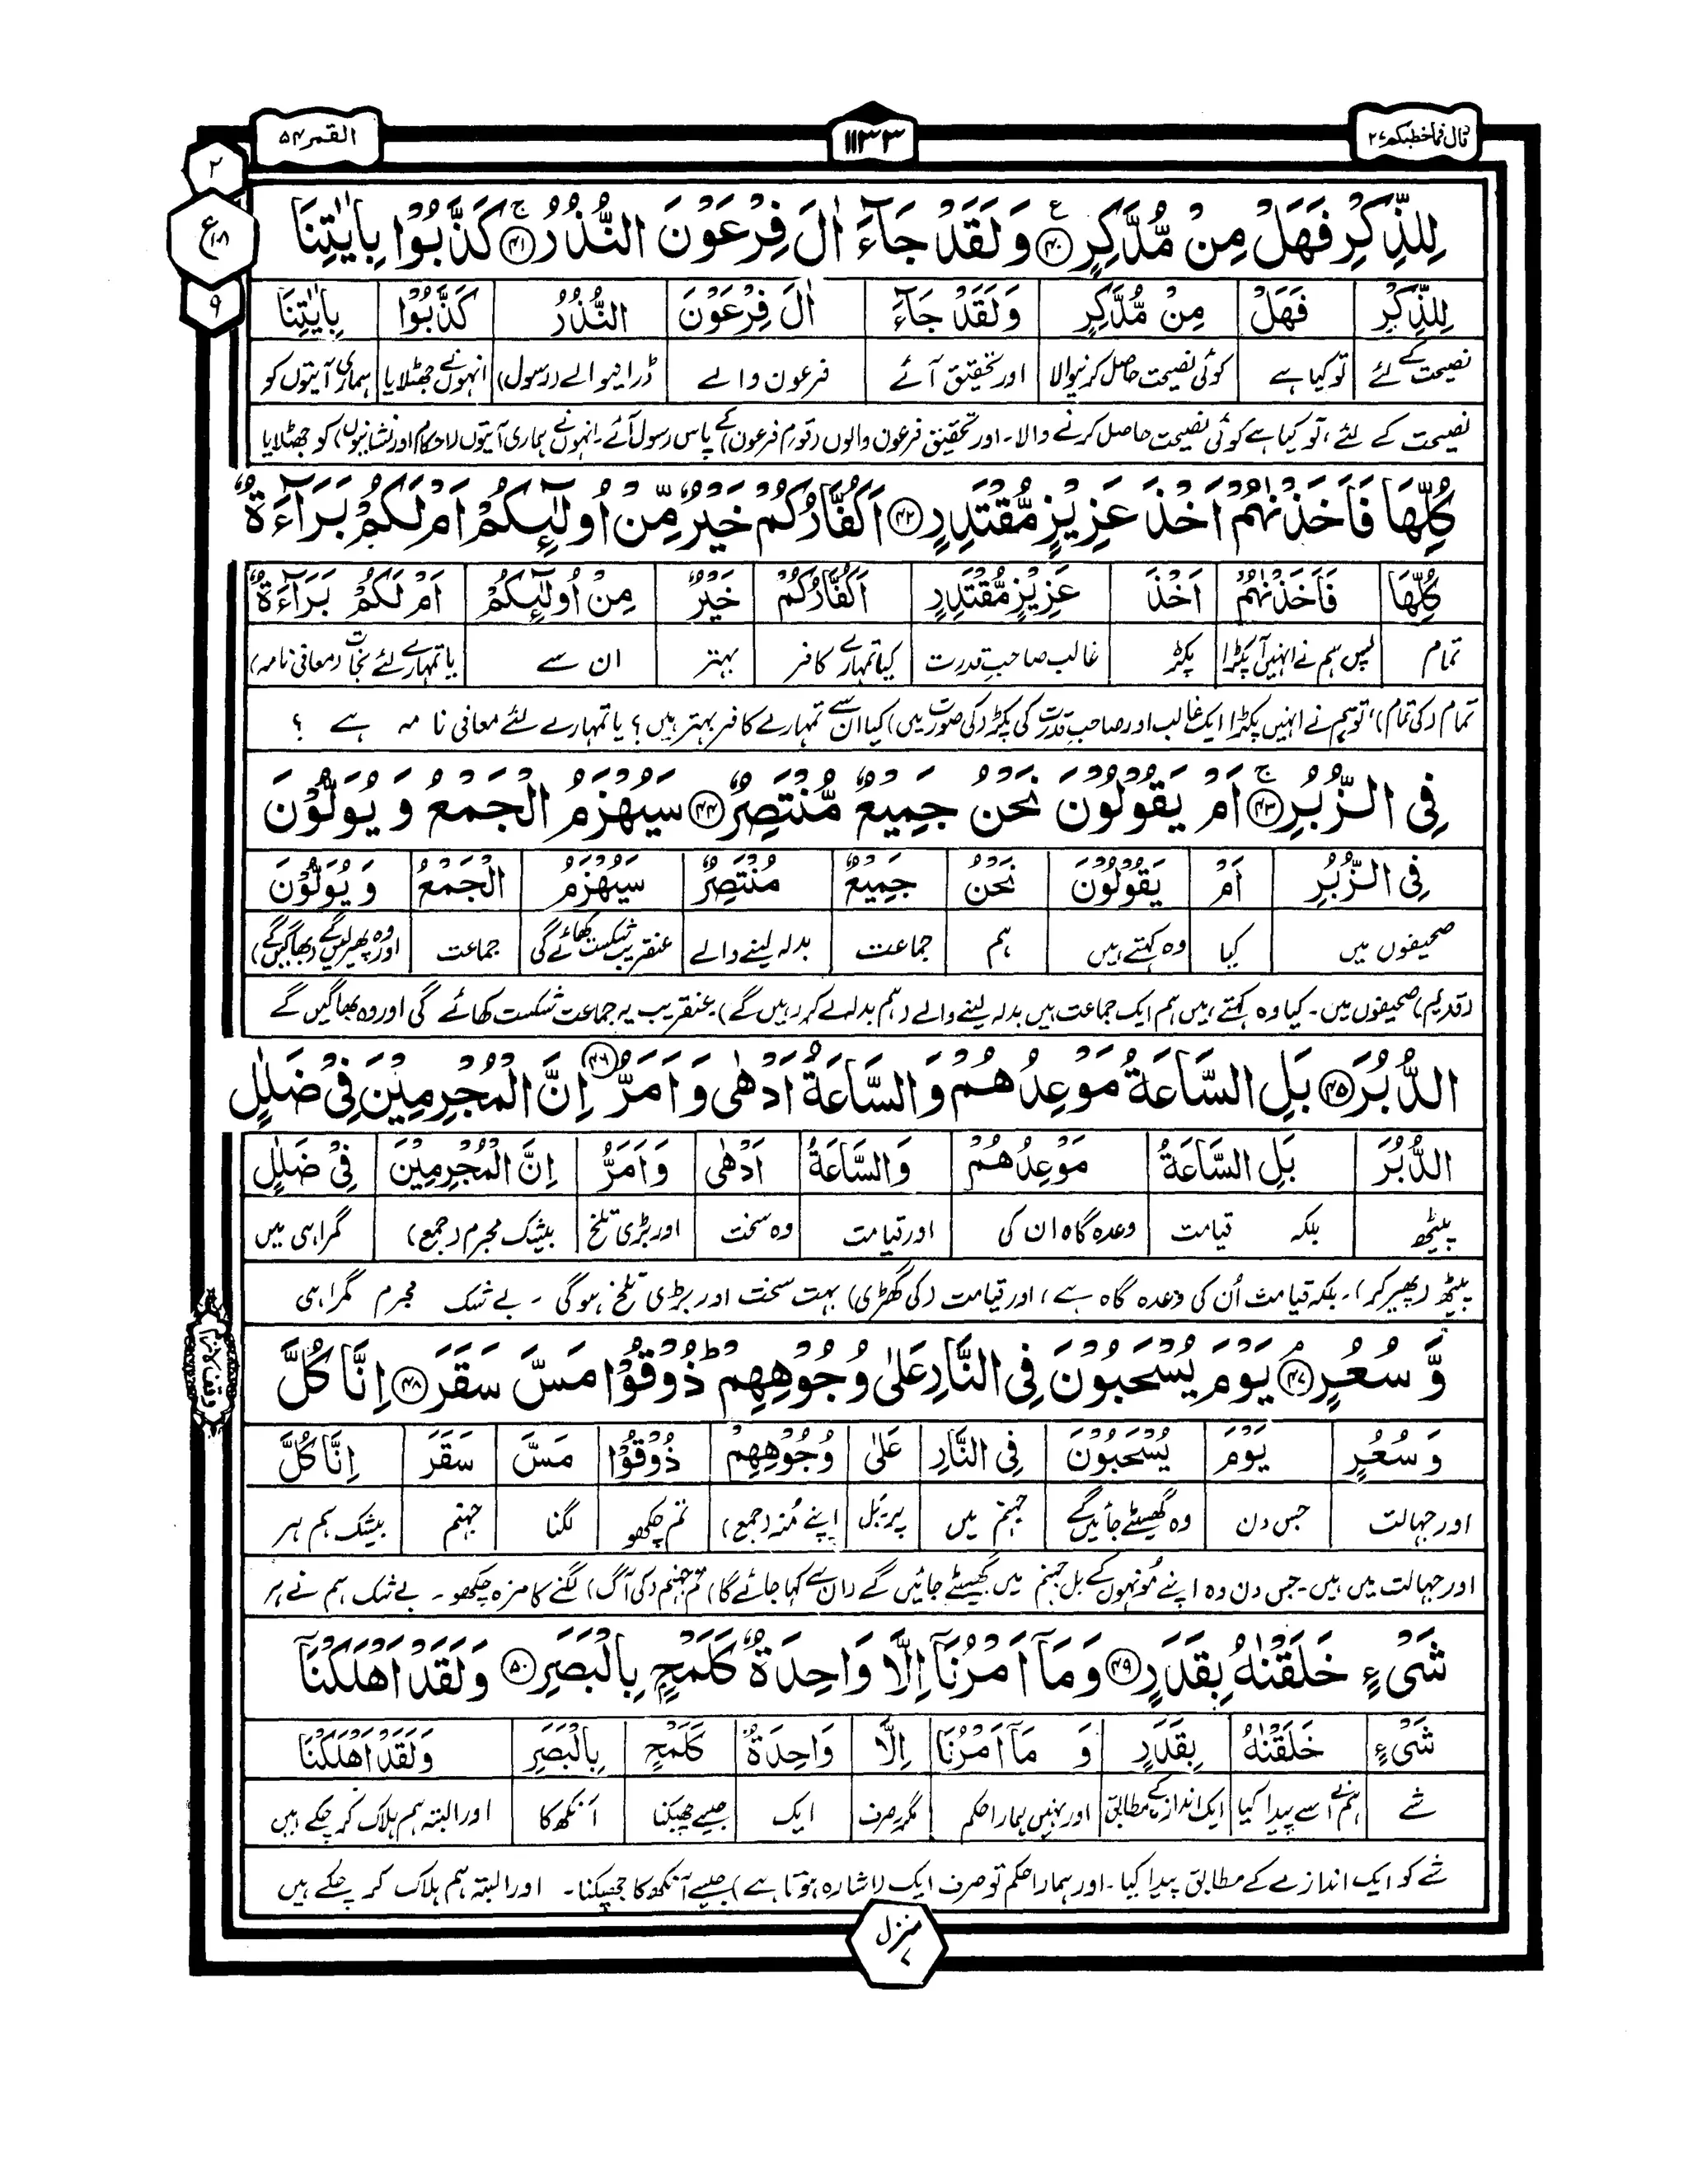 قال فما خطبكم ۲۷
۱۱۳۳
القمر ۵۴
۲
ع ۱۸
۹
لِلذِّكْرِ فَهَلْ مِنْ مُّدَّكِرٍ ﴿۴۰﴾ وَ لَقَدْ جَآءَ اٰلَ فِرْعَوْنَ النُّذُرُ ﴿۴۱﴾ كَذَّبُوْا بِاٰيٰتِنَا
لِلذِّكْرِ فَهَلْ مِنْ مُّدَّكِرٍ وَلَقَدْ جَآءَ اٰلَ فِرْعَوْنَ النُّذُرُ كَذَّبُوْا بِاٰيٰتِنَا
نصیحت کے لئے تو کیا ہے کوئی نصیحت حاصل کرنیوالا اور تحقیق آئے فرعون والے ڈرانیوالے (رسول) انہوں نے جھٹلایا ہماری آیتوں کو
نصیحت کے لئے، تو کیا ہے کوئی نصیحت حاصل کرنے والا۔ اور تحقیق فرعون والوں (قوم فرعون) کے پاس رسول آئے۔ انہوں نے ہماری آیتوں (احکام اور نشانیوں) کو جھٹلایا
كُلِّهَا فَاَخَذْنٰهُمْ اَخْذَ عَزِيْزٍ مُّقْتَدِرٍ ﴿۴۲﴾ اَكُفَّارُكُمْ خَيْرٌ مِّنْ اُولٰٓئِكُمْ اَمْ لَكُمْ بَرَآءَةٌ
كُلِّهَا فَاَخَذْنٰهُمْ اَخْذَ عَزِيْزٍ مُّقْتَدِرٍ اَكُفَّارُكُمْ خَيْرٌ مِنْ اُولٰٓئِكُمْ اَمْ لَكُمْ بَرَآءَةٌ
تمام پس ہم نے انہیں آپکڑا پکڑ غالب صاحبِ قدرت کیا تمہارے کافر بہتر ان سے یا تمہارے لئے نجات (معافی نامہ)
تمام (کی تمام)، تو ہم نے انہیں پکڑا ایک غالب اور صاحبِ قدرت کی پکڑ (کی صورت میں) کیا ان سے تمہارے کافر بہتر ہیں؟ یا تمہارے لئے معافی نامہ ہے ؟
فِی الزُّبُرِ ﴿۴۳﴾ اَمْ يَقُوْلُوْنَ نَحْنُ جَمِيْعٌ مُّنْتَصِرٌ ﴿۴۴﴾ سَيُهْزَمُ الْجَمْعُ وَ يُوَلُّوْنَ
فِی الزُّبُرِ اَمْ يَقُوْلُوْنَ نَحْنُ جَمِيْعٌ مُنْتَصِرٌ سَيُهْزَمُ الْجَمْعُ وَ يُوَلُّوْنَ
صحیفوں میں کیا وہ کہتے ہیں ہم جماعت بدلہ لینے والے عنقریب شکست کھائے گی جماعت اور وہ پھیر لیں گے (بھاگیں گے)
(قدیم) صحیفوں میں۔ کیا وہ کہتے ہیں ہم ایک جماعت ہیں بدلہ لینے والے (ہم بدلہ لے کر رہیں گے) عنقریب یہ جماعت شکست کھائے گی اور وہ بھاگیں گے
الدُّبُرَ ﴿۴۵﴾ بَلِ السَّاعَةُ مَوْعِدُهُمْ وَالسَّاعَةُ اَدْهٰی وَ اَمَرُّ ﴿۴۶﴾ اِنَّ الْمُجْرِمِيْنَ فِیْ ضَلٰلٍ
الدُّبُرَ بَلِ السَّاعَةُ مَوْعِدُهُمْ وَالسَّاعَةُ اَدْهٰی وَ اَمَرُّ اِنَّ الْمُجْرِمِيْنَ فِیْ ضَلٰلٍ
پیٹھ بلکہ قیامت وعدہ گاہ ان کی اور قیامت وہ سخت اور بڑی تلخ بیشک مجرم (جمع) گمراہی میں
پیٹھ (پھیر کر)۔ بلکہ قیامت اُن کی وعدہ گاہ ہے، اور قیامت (کی گھڑی) بہت سخت اور بڑی تلخ ہوگی ۔ بے شک مجرم گمراہی
وَّ سُعُرٍ ﴿۴۷﴾ يَوْمَ يُسْحَبُوْنَ فِی النَّارِ عَلٰی وُجُوْهِهِمْ ط ذُوْقُوْا مَسَّ سَقَرَ ﴿۴۸﴾ اِنَّا كُلَّ
وَ سُعُرٍ يَوْمَ يُسْحَبُوْنَ فِی النَّارِ عَلٰی وُجُوْهِهِمْ ذُوْقُوْا مَسَّ سَقَرَ اِنَّا كُلَّ
اور جہالت جس دن وہ گھسیٹے جائیں گے جہنم میں پر۔بَل اپنے مُنہ (جمع) تم چکھو لگنا جہنم بیشک ہم ہر
اور جہالت میں ہیں۔ جس دن وہ اپنے مونہوں کے بل جہنم میں گھسیٹے جائیں گے (ان سے کہا جائے گا) تم جہنم (کی آگ) لگنے کا مزہ چکھو ۔ بے شک ہم نے ہر
شَیْءٍ خَلَقْنٰهُ بِقَدَرٍ ﴿۴۹﴾ وَ مَآ اَمْرُنَآ اِلَّا وَاحِدَةٌ كَلَمْحٍ بِالْبَصَرِ ﴿۵۰﴾ وَ لَقَدْ اَهْلَكْنَآ
شَیْءٍ خَلَقْنٰهُ بِقَدَرٍ وَ مَآ اَمْرُنَا اِلَّا وَاحِدَةٌ كَلَمْحٍ بِالْبَصَرِ وَلَقَدْ اَهْلَكْنَا
شے ہم نے اسے پیدا کیا ایک اندازے کے مطابق اور نہیں ہمارا حکم مگر صرف ایک جیسے جھپکنا آنکھ کا اور البتہ ہم ہلاک کر چکے ہیں
شے کو ایک اندازے کے مطابق پیدا کیا۔ اور ہمارا حکم تو صرف ایک (اشارہ ہوتا ہے) جیسے آنکھ کا جھپکنا۔ اور البتہ ہم ہلاک کر چکے ہیں
منزل ۷